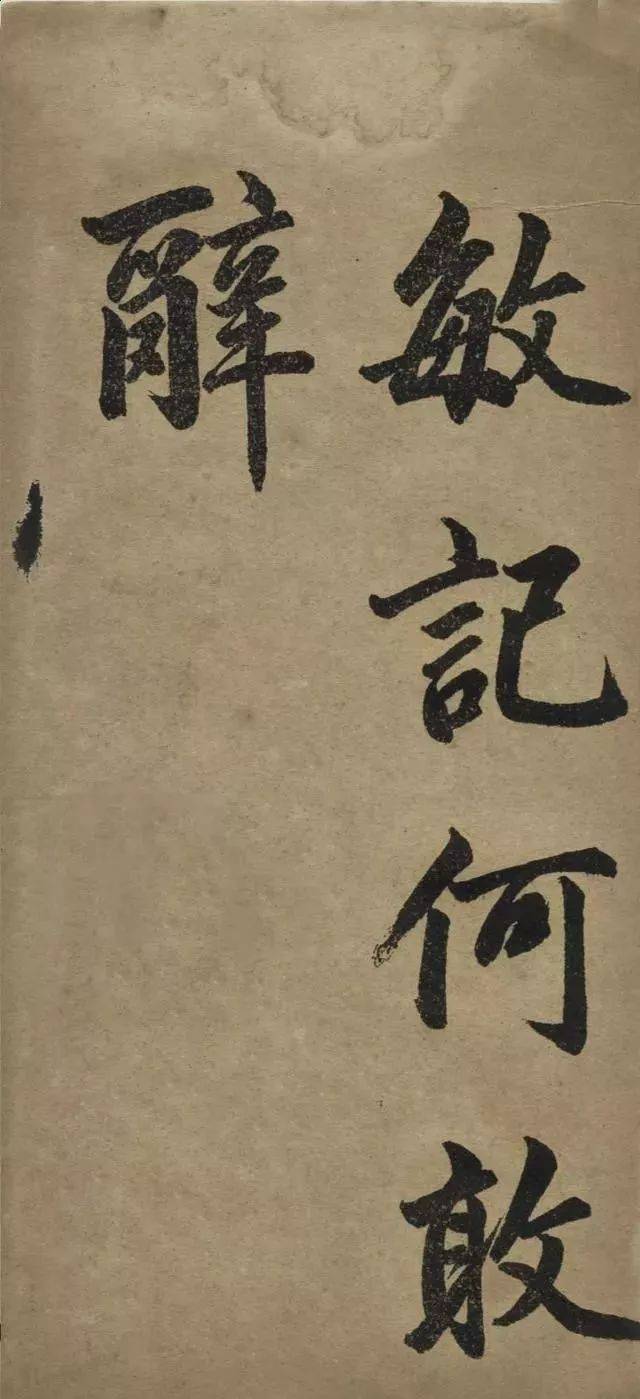 敏記何敢
辭